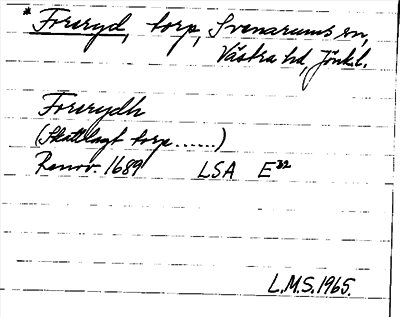 * Foreryd, torp, Svenarums sn,
Västra hd, Jönk.l.
Forerydh
(Skattlagt torp ......)
Renov. 1689 LSA E³²
L.M.S. 1965.